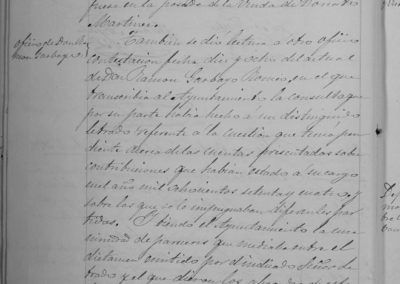 fuese en la posada de la Viuda de
Martinez.
oficio de Don Ra
mon Garbayo
Tambien se dio lectura a otro oficio
contestacion fecha diez y ocho del actual
de don Ramon Garbayo Romeo, en el que
transcribia al Ayuntamiento la consulta que
por su parte habia hecho a un distinguido
letrado referente a la cuestion que tenia pen
diente acerca de las cuentas presentadas sobre
contribuciones que habian estado a su cargo
en el año mil ochocientos setenta y cuatro, y
sobre las que se le impugnaban diferentes par
tidas. Y siendo el Ayuntamiento la
de pareceres que mediaba entre el
dictamen emitido por el indicado Señor le
trado y el que dieron los